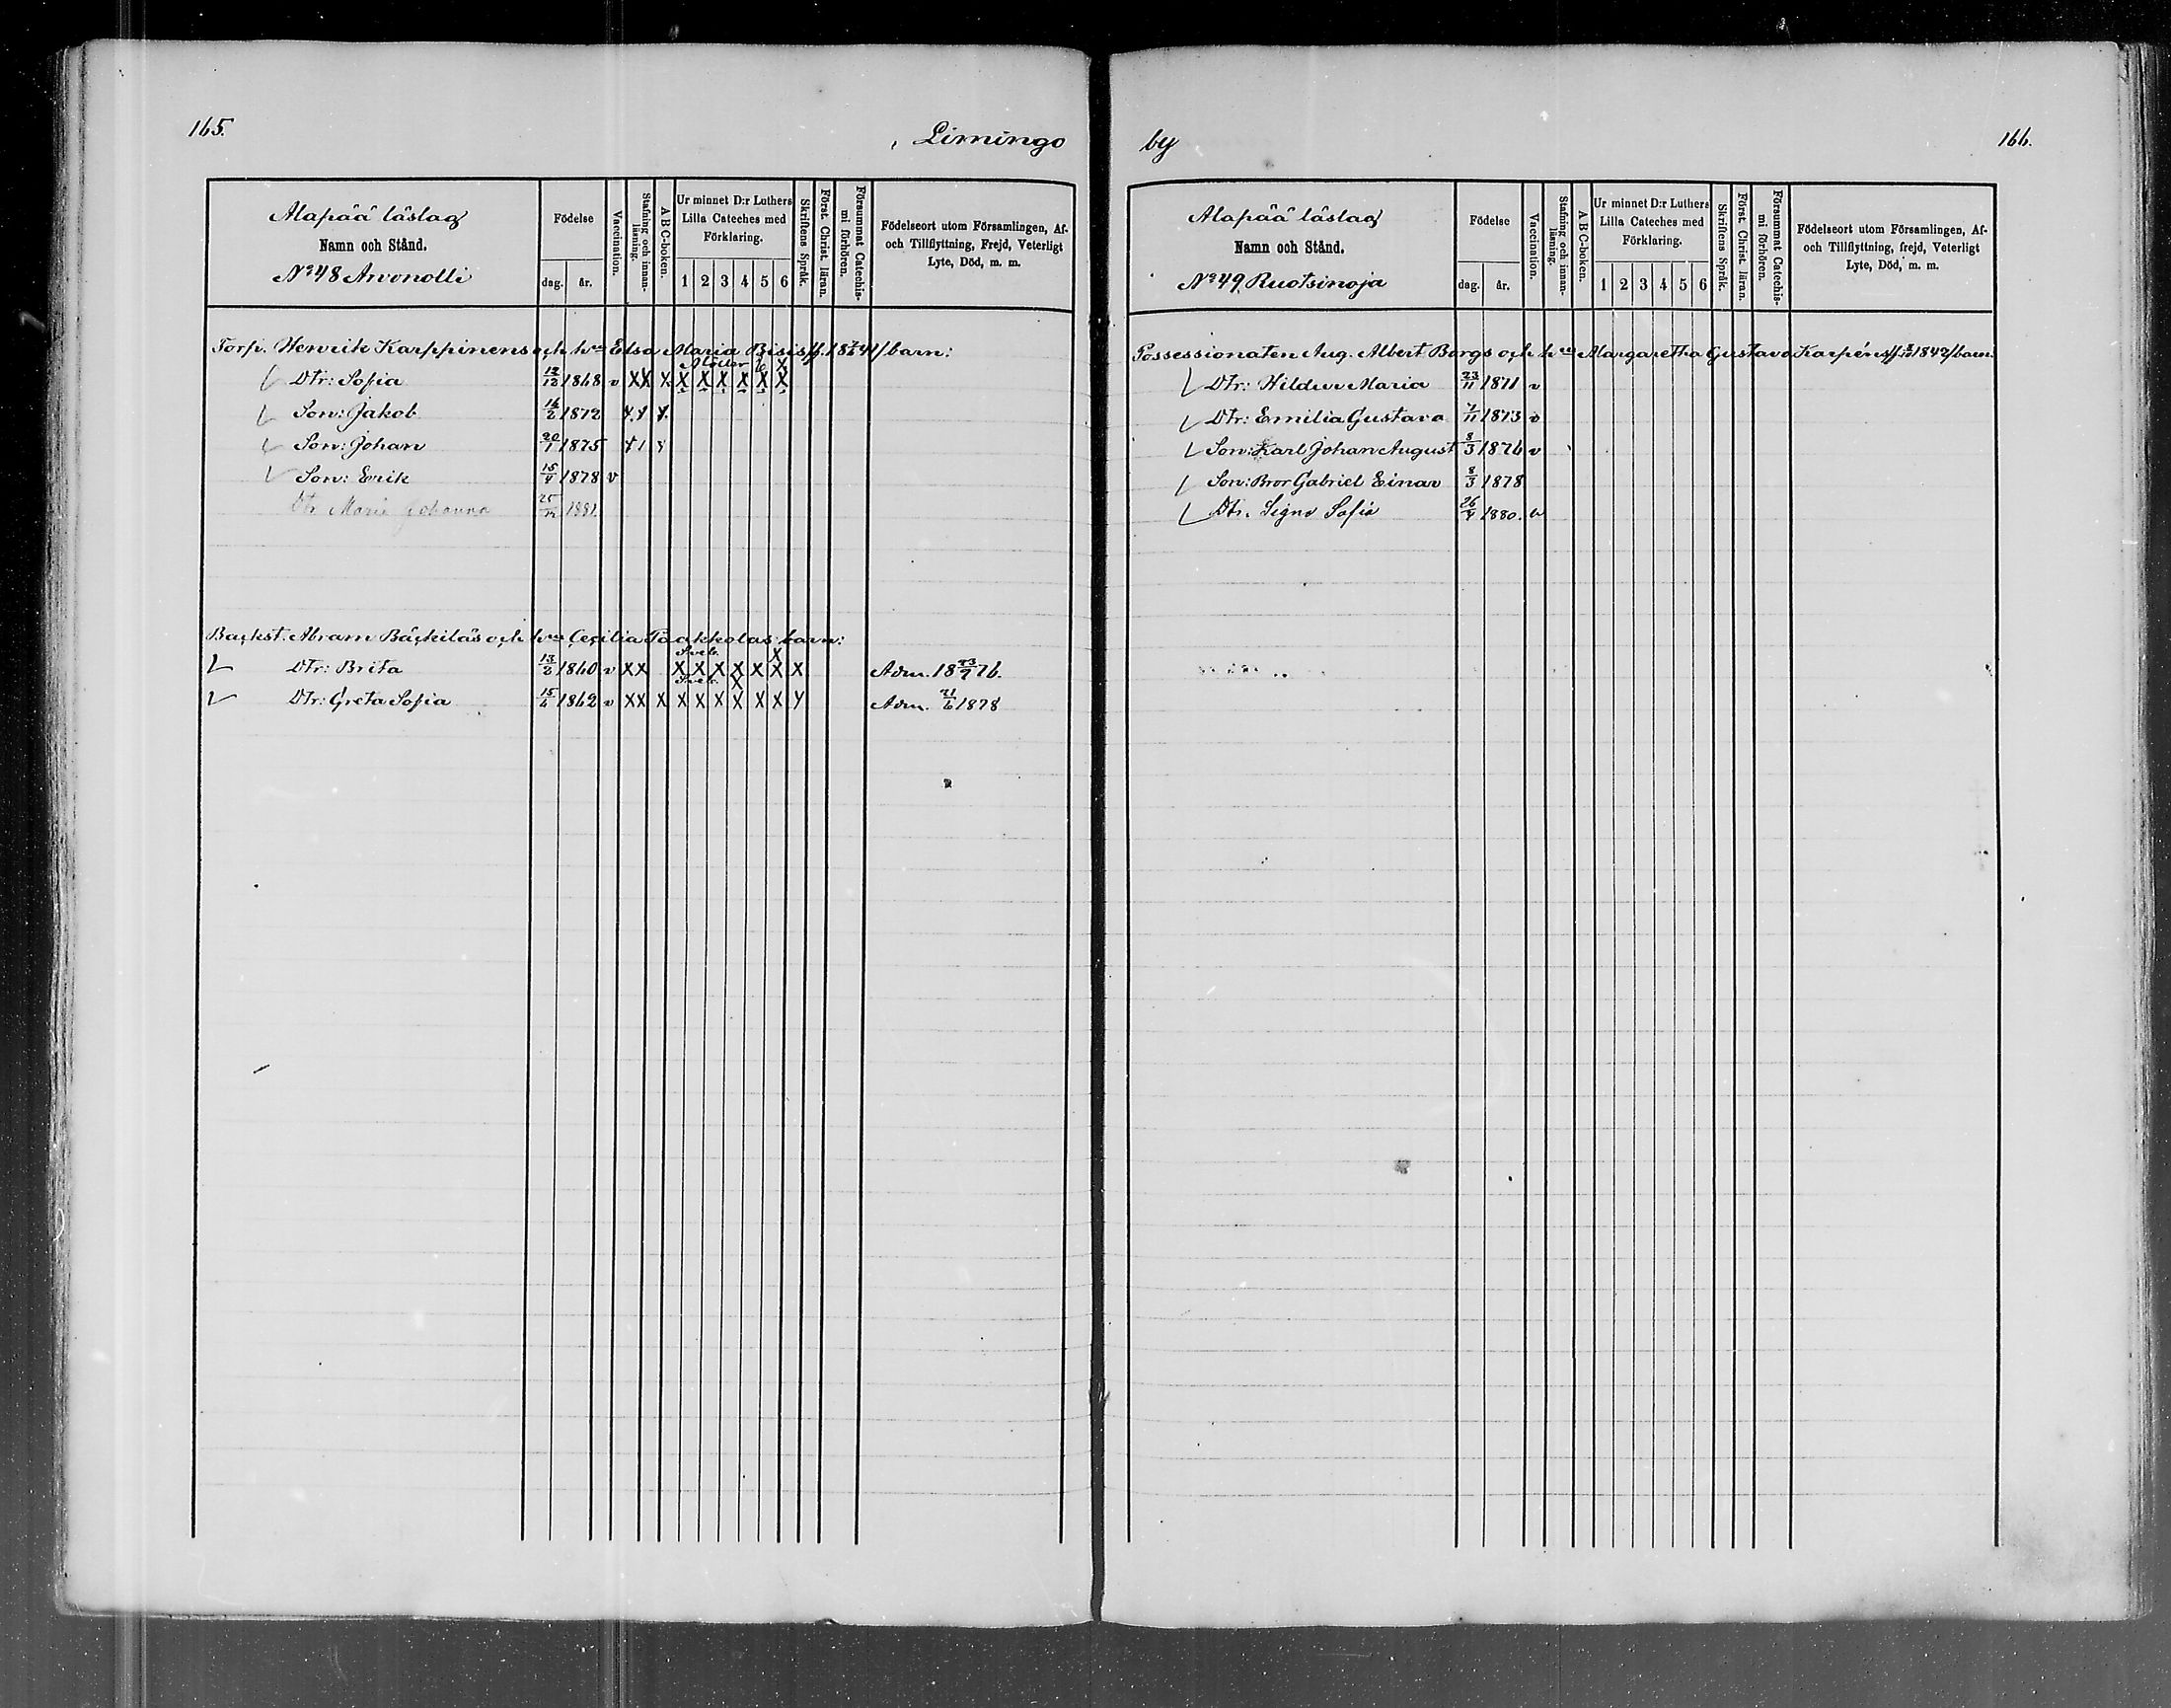 165.
Limingo
Alapää läslag
Namn och Stånd.
No 48 Arvonolli
Födelse
dag. år.
Vaccination.
Stafning och innan-läsning.
A B C-boken.
Ur minnet D:r Luthers
Lilla Cateches med
Förklaring.
1 2 3 4 5 6
Skriftens Språk.
Först. Christ. läran.
Försummat Catechis-mi förhören.
Födelseort utom Församlingen, Af-
och Tillflyttning, Frejd, Veterligt
Lyte, Död, m. m.
Torp. Henrik Karppinens och h:us Elsa Maria barn:
Dtr: Sofia 12/12 1868 v XX X X X X X X X
Son: Jakob 16/2 1872 X X X
Son: Johan 20/1 1875
Son: Erik 15/4 1878 v
Dtr Maria Johanna 25/12 1881.
Backst. Abram Bäckiläs och h:us Cecilia Taakkolas barn:
Sveb. X
Dtr: Brita 13/2 1860 v XX X X X X X X X Adm. 18 23/7 76.
Sveb. X
Dtr: Greta Sofia 15/4 1862 v XX X X X X X X X Y Adm. 21/6 1878
by
166.
Alapää läslag
Namn och Stånd.
No 49. Ruotsinoja
Födelse
dag. år.
Vaccination.
Stafning och innan-läsning.
A B C-boken.
Ur minnet D:r Luthers
Lilla Cateches med
Förklaring.
1 2 3 4 5 6
Skriftens Språk.
Först. Christ. läran.
Försummat Catechis-mi förhören.
Födelseort utom Församlingen, Af-
och Tillflyttning, frejd, Veterligt
Lyte, Död, m. m.
Possessionaten Aug. Albert Borgs och h:us Margaretha Gustava 1842/barn:
Dtr: Hildur Maria 23/11 1871 v
Dtr: Emilia Gustava 7/11 1873 v
Son: Karl Johan August 8/3 1876 v
Son: Bror Gabriel Einar 8/3 1878
Dtr. Signe Sofia 26/4 1880. v